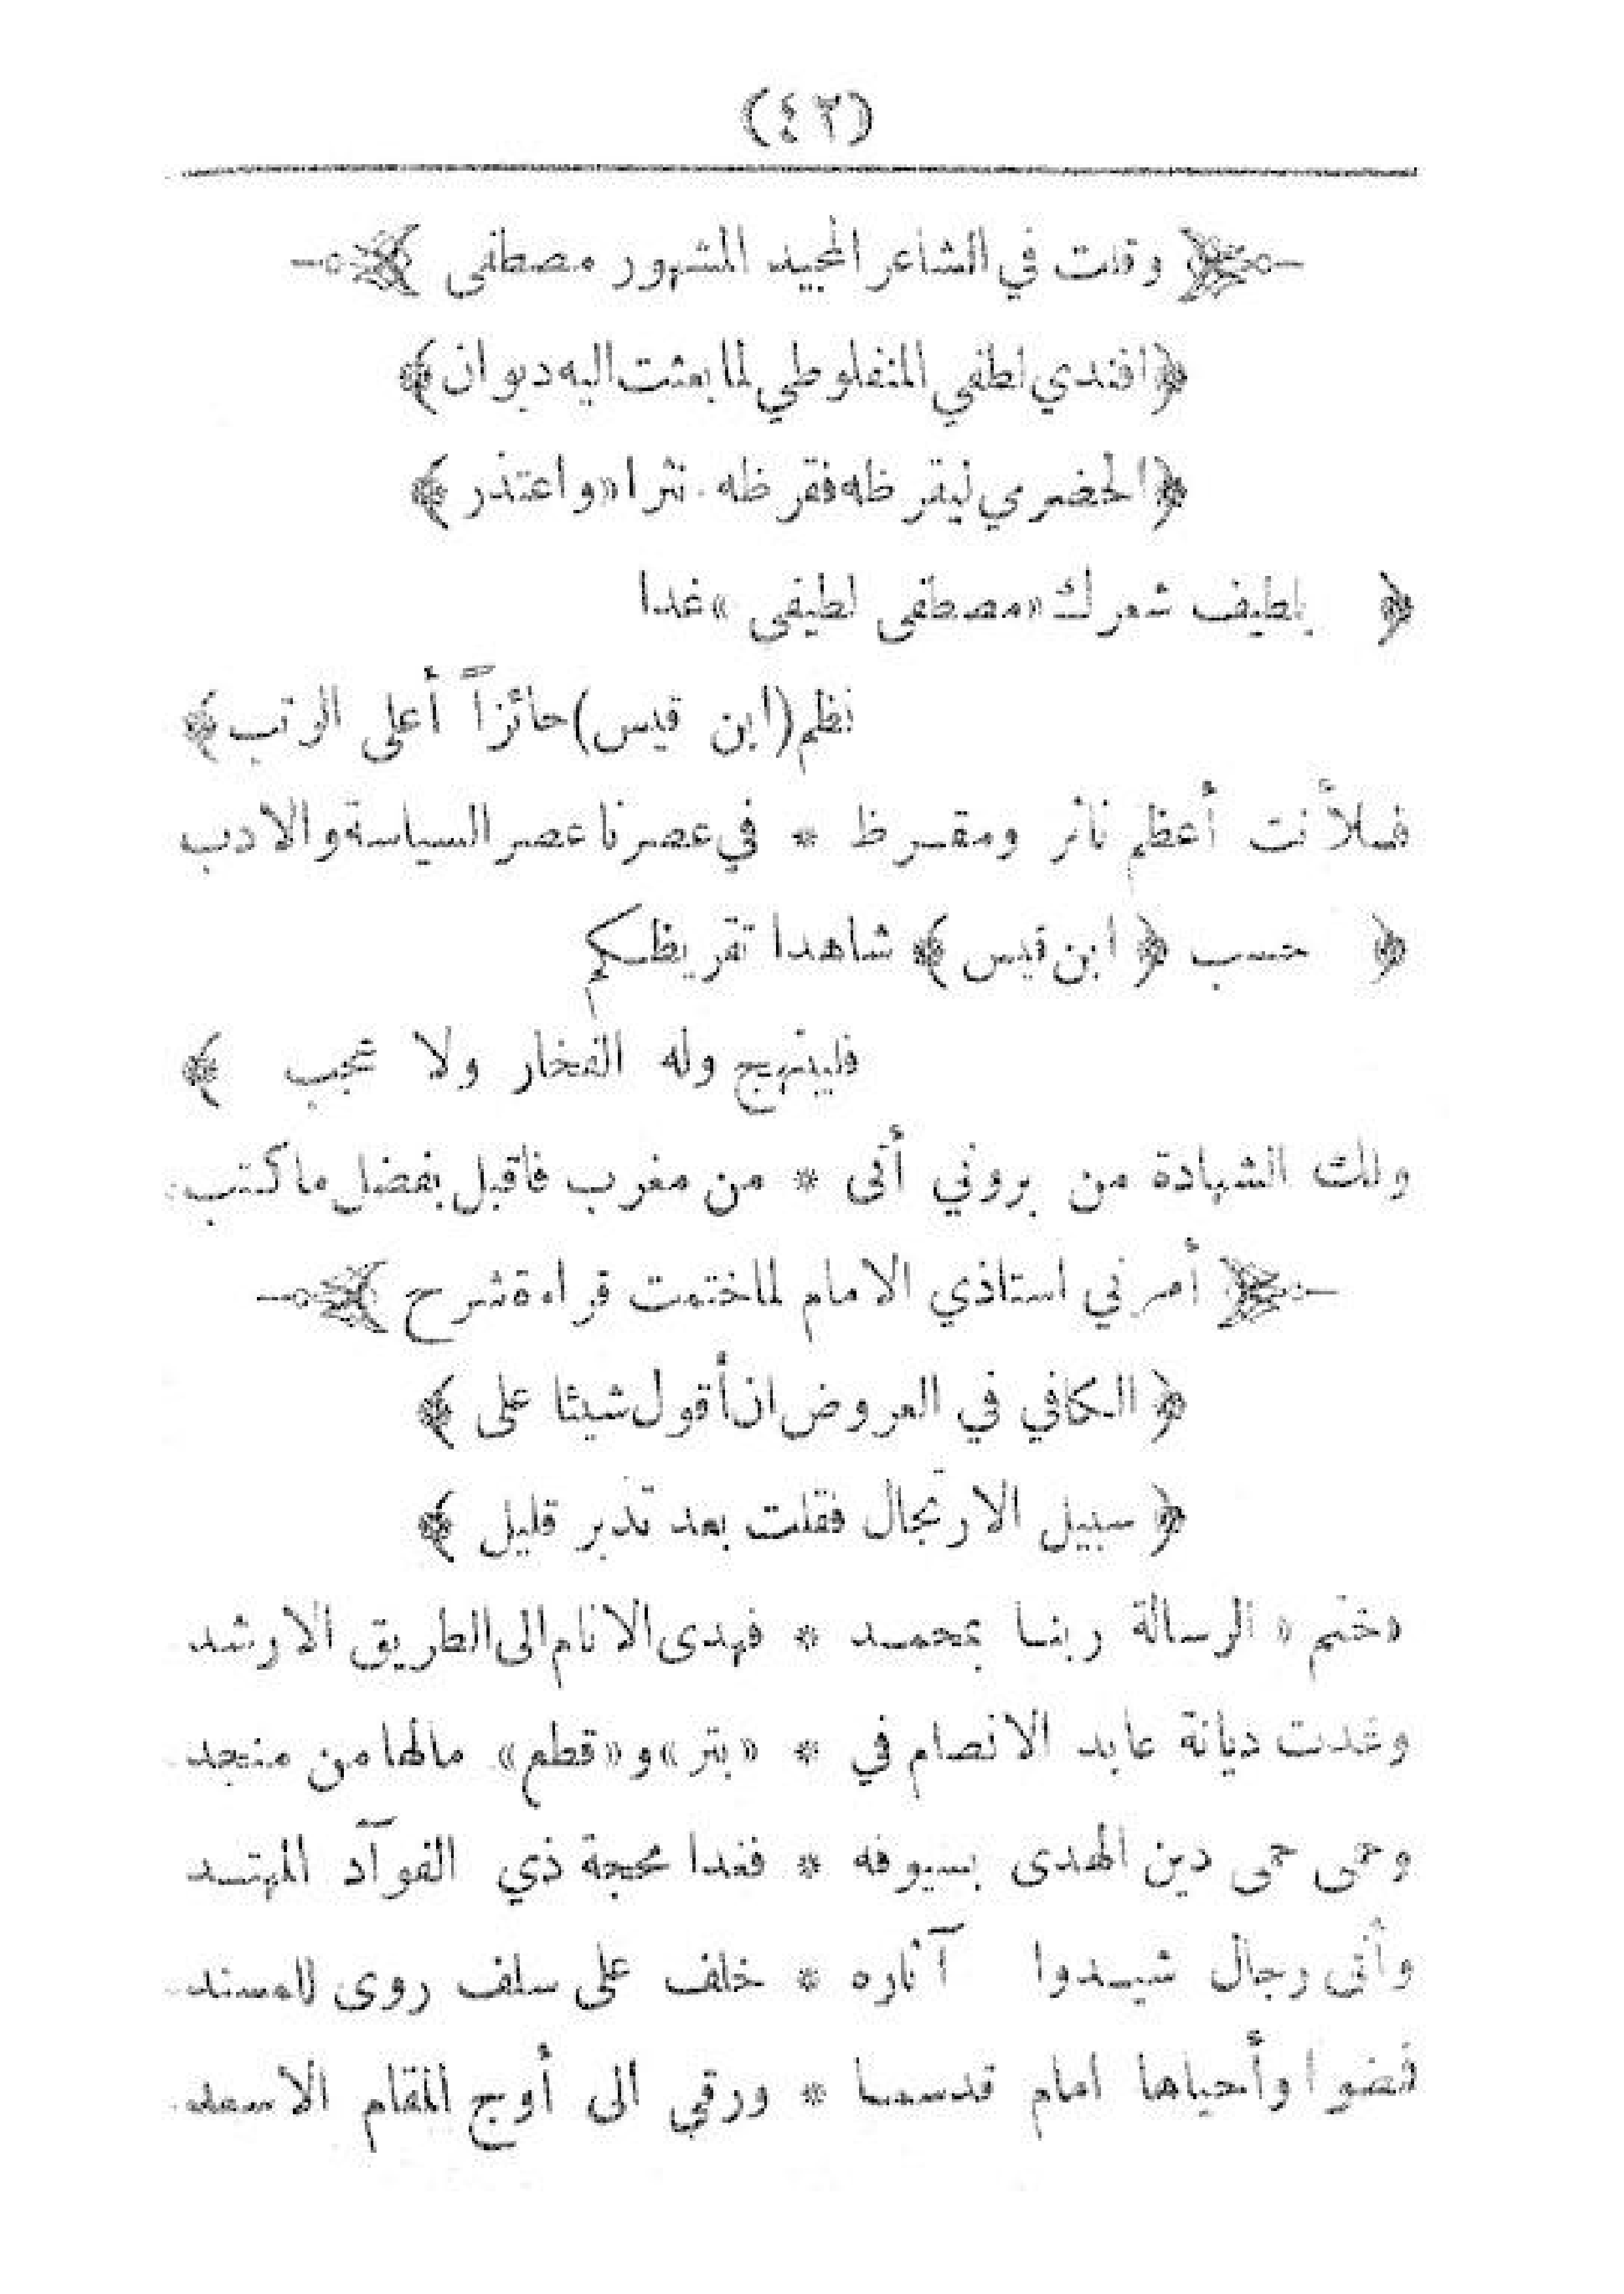 (٤٢)
﴿ وقلت في الشاعر المجيد الشهور مصطفى ﴾
﴿ افندي لطفي المنفلوطي لما بعثت اليه ديوان ﴾
﴿ الحضرمي ليقرظه فقرظه نثرا «واعتذر ﴾
﴿ بلطيف شعرك «مصطفى لطيفى» غدا
نظم (ابن قيس) حائزاً أعلى الرتب ﴾
فلأنت أعظم ناثر ومقرظ * في عصرنا عصر السياسة والادب
﴿ حسب ﴿ ابن قيس ﴾ شاهدا تقريظكم
فليبتهج وله الفخار ولا عجب ﴾
ولك الشهادة من بروني أتى * من مغرب فاقبل بفضل ما كتب
﴿ أمرني استاذي الامام لما ختمت قراءة شرح ﴾
﴿ الكافي في العروض ان أقول شيئا على ﴾
﴿ سبيل الارتجال فقلت بعد تدبر قليل ﴾
«ختم» الرسالة ربنا بمحمد * فهدى الانام الى الطريق الارشد
وغدت ديانة عابد الانصام في * «بتر» و«قطع» مالها من منجد
وحمى حمى دين الهدى بسيوفه * فغدا محجة ذي الفوآد المهتد
وأتى رجال شيدوا آثاره * خلف على سلف روى للمسند
فمضوا وأحياها امام قدسما * ورقى الى أوج المقام الاسعد